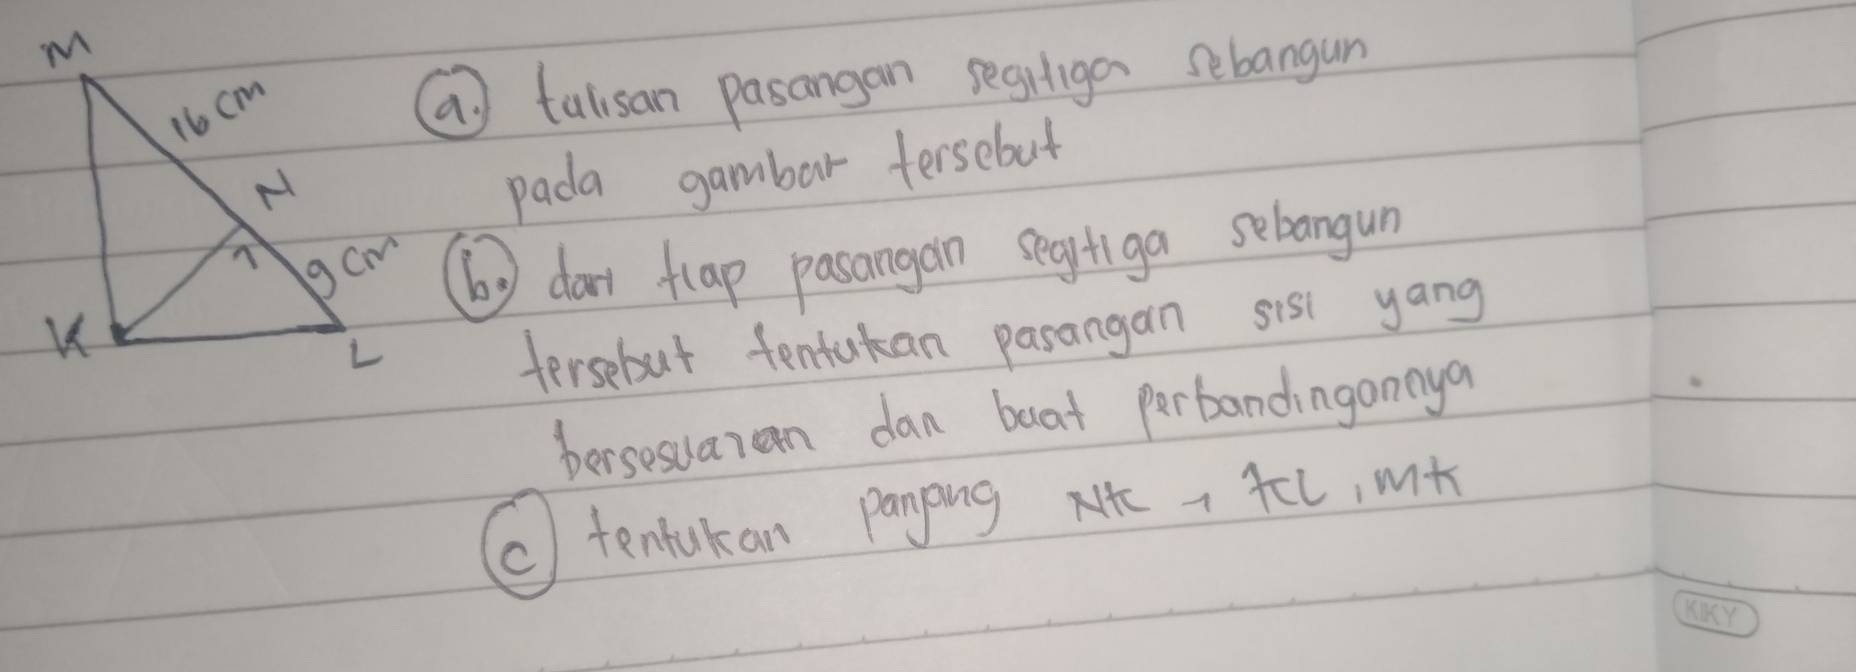 M
16 cm
N
9 cm
K
L
a.) tulisan pasangan segitiga sebangun
pada gambar tersebut
b.) dari tiap pasangan segitiga sebangun
tersebut tentukan pasangan sisi yang
bersesuaian dan buat perbandingannya
c) tentukan panjang NK, KL, MK
KIKY